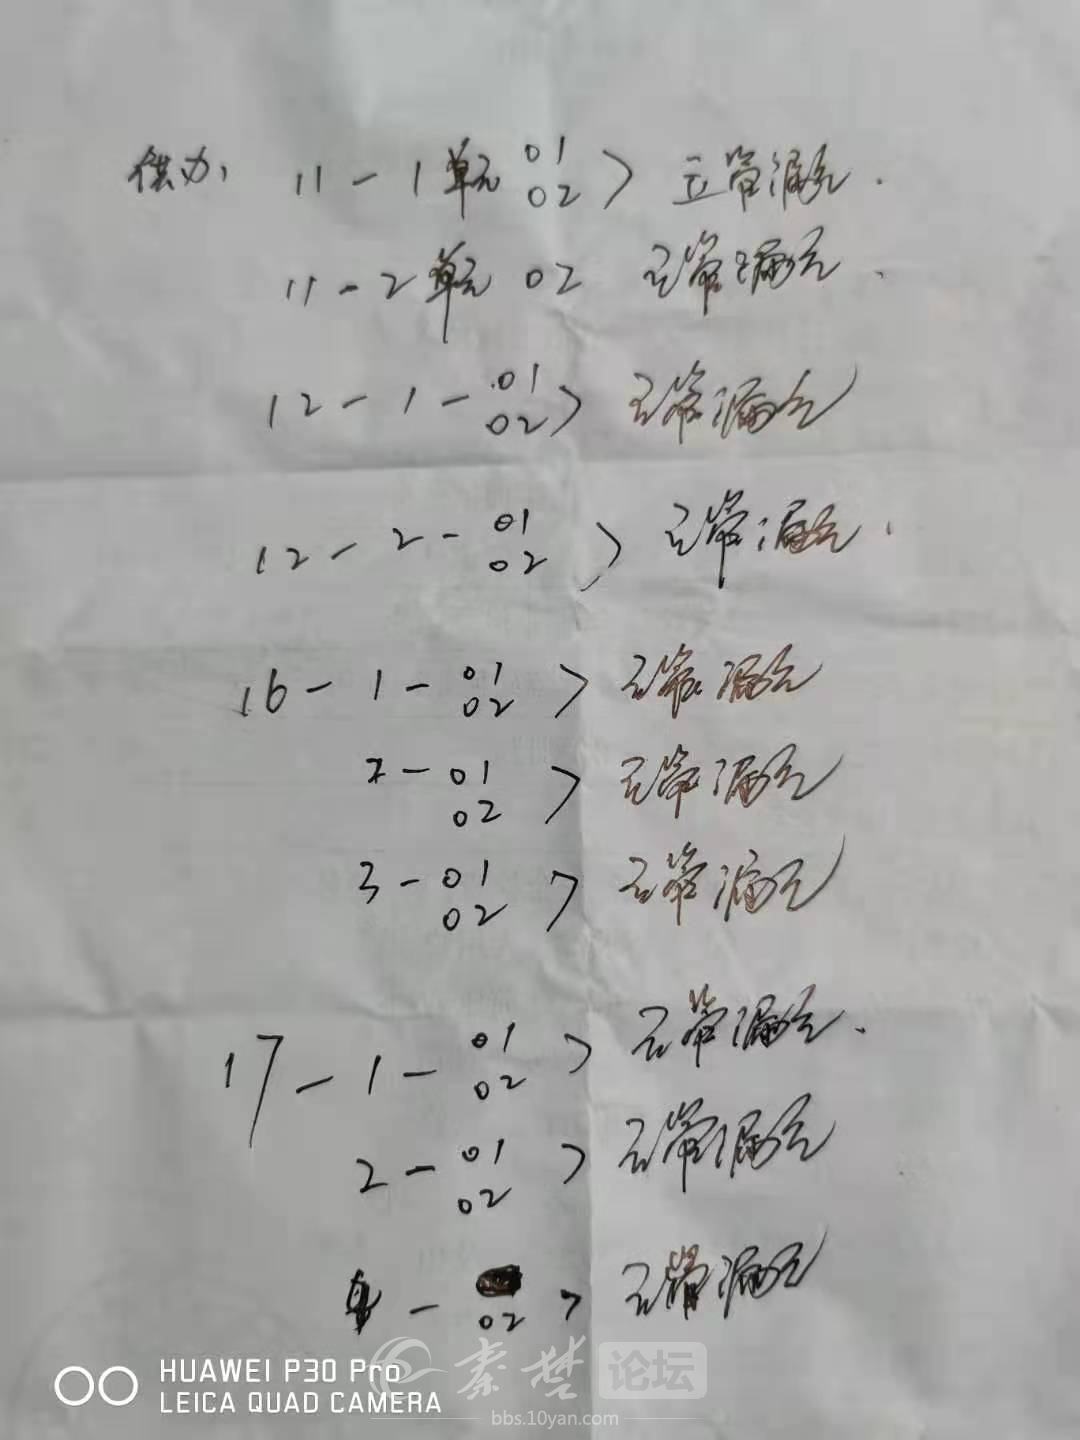 11-1单元 01 > 立管漏
02
11-2单元 02 立管漏
12-1-01 > 立管漏
02
12-2-01 > 立管漏
02
16-1-01 > 立管漏
02
2-01 > 立管漏
02
3-01 > 立管漏
02
17-1-01 > 立管漏
02
2-01 > 立管漏
02
- 02 > 立管漏
HUAWEI P30 Pro
LEICA QUAD CAMERA
秦楚论坛
bbs.10yan.com